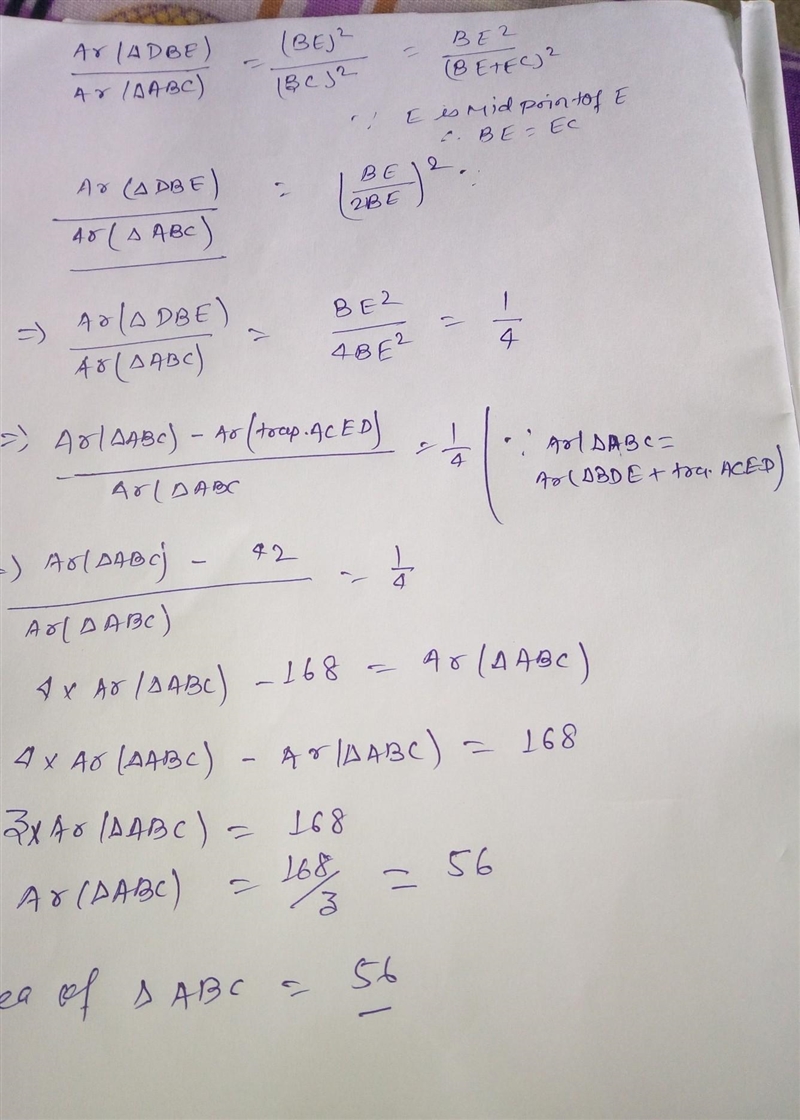 Ar(ΔDBE) / Ar(ΔABC) = (BE)² / (BC)² = BE² / (BE+EC)²
∵ E is Mid point of E
∴ BE = EC
Ar(ΔDBE) / Ar(ΔABC) = (BE / 2BE)² ∵
=> Ar(ΔDBE) / Ar(ΔABC) = BE² / 4BE² = 1/4
=> Ar(ΔABC) - Ar(trap.ACED) / Ar(ΔABC = 1/4 ∵ Ar(ΔABC =
Ar(ΔBDE + tra. ACED)
=) Ar(ΔABC) - 42 / Ar(ΔABC) = 1/4
4 x Ar(ΔABC) - 168 = Ar(ΔABC)
4 x Ar(ΔABC) - Ar(ΔABC) = 168
3x Ar(ΔABC) = 168
Ar(ΔABC) = 168/3 = 56
ea of ΔABC = 56